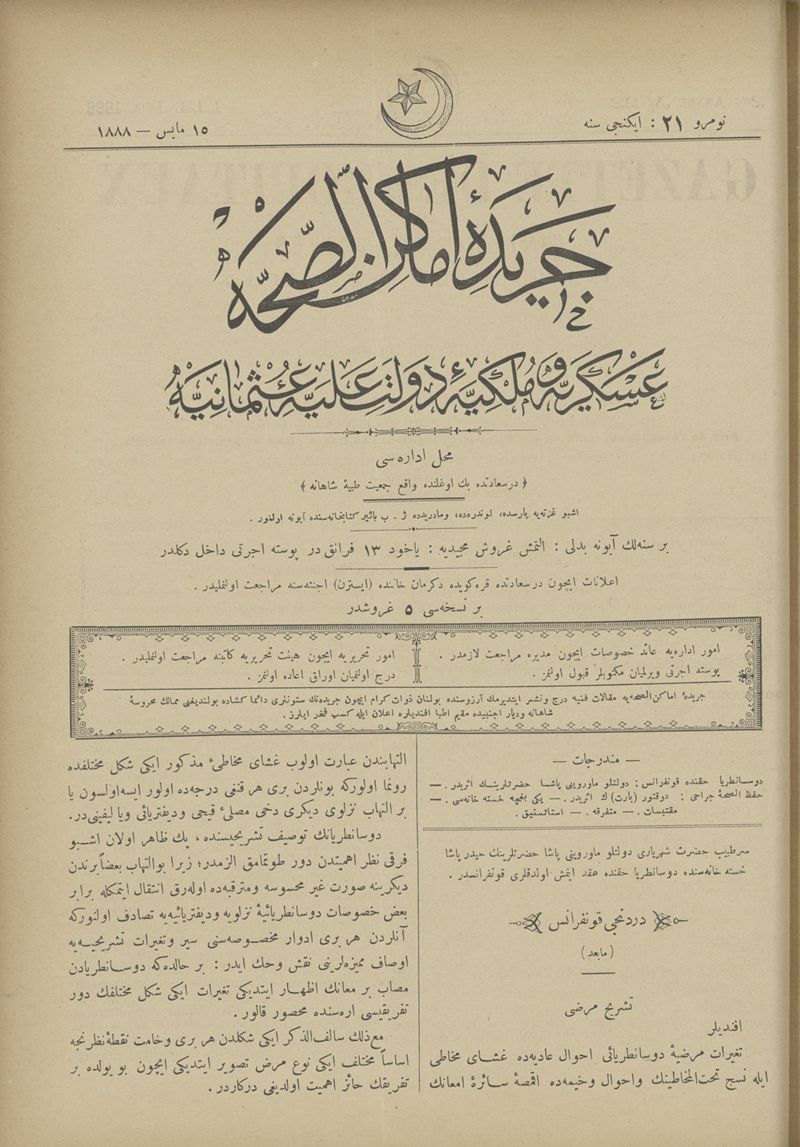 نومرو ٢١ : ایکنجی سنه
١٥ مایس — ١٨٨٨
جریدۀ اماكن الصحّه
عسكریه و ملكیۀ دولت علیۀ عثمانیه
محل اداره سی
﴿ درسعادتده بك اوغلنده واقع جمعیت طبیۀ شاهانه ﴾
اشبو غزته‌یه پارسده، لوندره‌ده، ومادریدده ژ . ب بائیر كتابخانه‌سنده آبونه اولنور .
بر سنه‌لك آبونه بدلی : التمش غروش مجیدیه : یاخود ١٣ فرانق در پوسته اجرتی داخل دكلدر
اعلانات ایچون درسعادتده قره‌كویده دكرمان خاننده (ایسترن) اجنته‌سنه مراجعت اولنملیدر .
بر نسخه‌سی ٥ غروشدر
امور اداره‌یه عائد خصوصات ایچون مدیره مراجعت لازمدر .
پوسته اجرتی ویرلمیان مكتوبلر قبول اولنمز .
امور تحریریه ایچون هیئت تحریریه كاتبنه مراجعت اولنملیدر .
درج اولنمیان اوراق اعاده اولنمز .
جریدۀ اماكن‌الصحه‌یه مقالات فنیه درج ونشر ایتدیرمك آرزوسنده بولنان ذوات كرام ایچون جریده‌نك ستونلری دائما كشاده بولندیغی ممالك محروسۀ
شاهانه ودیار اجنبیه‌ده مقیم اطبا افندیلره اعلان ایله كسب فخر ایلرز .
— مندرجات —
دوسانطریا حقنده قونفرانس : دولتلو ماوروینی پاشا حضرتلرینك اثریدر . —
حفظ الصحۀ جراحی : دوقتور (پارت) ك اثریدر . — یكی بغچه خسته خانه‌سی . —
مقتبسات . — متفرقه . — استاتستیق .
سرطبیب حضرت شهریاری دولتلو ماوروینی پاشا حضرتلرینك حیدر پاشا
خسته خانه‌سنده دوسانطریا حقنده عقد ایتمش اولدقلری قونفرانسدر .
دردنجی قونفرانس
(مابعد)
تشریح مرضی
افندیلر
تغیرات مرضیۀ دوسانطریائی احوال عادیه‌ده غشای مخاطی
ایله نسج تحت‌المخاطینك واحوال وخیمه‌ده اقمصۀ سائرۀ امعانك
التهابندن عبارت اولوب غشای مخاطئ مذكور ایكی شكل مختلفده
رونما اولوركه بونلردن بری هر قنغی درجه‌ده اولور ایسه‌اولسون یا
بر التهاب نزلوی دیكری دخی مصلئ قیحی ودیفتریائی ویا لیفینی‌در.
دوسانطریانك توصیف تشریحیسنده ، پك ظاهر اولان اشبو
فرقی نظر اهمیتدن دور طوتمامق الزمدر؛ زیرا بوالتهاب بعضاً برندن
دیكرینه صورت غیر محسوسه ومترقبه‌ده اوله‌رق انتقال ایتمكله برابر
بعض خصوصات دوسانطریائیۀ نزلویه ودیفتریائیه‌یه تصادف اولنوركه
آنلردن هر بری ادوار مخصوصه‌سنی سیر وتغیرات تشریحیه‌یه
اوصاف ممیزه‌لرینی نقش وحك ایدر : بر حالده‌كه دوسانطریادن
مصاب بر معانك اظهار ایتدیكی تغیرات ایكی شكل مختلفك دور
تفریقیسی اره‌سنده محصور قالور .
مع‌ذلك سالف‌الذكر ایكی شكلدن هر بری وخامت نقطۀ نظرنجه
اساساً مختلف ایكی نوع مرض تصویر ایتدیكی ایچون بو یولده بر
تفریقك حائز اهمیت اولدیغی دركاردر .